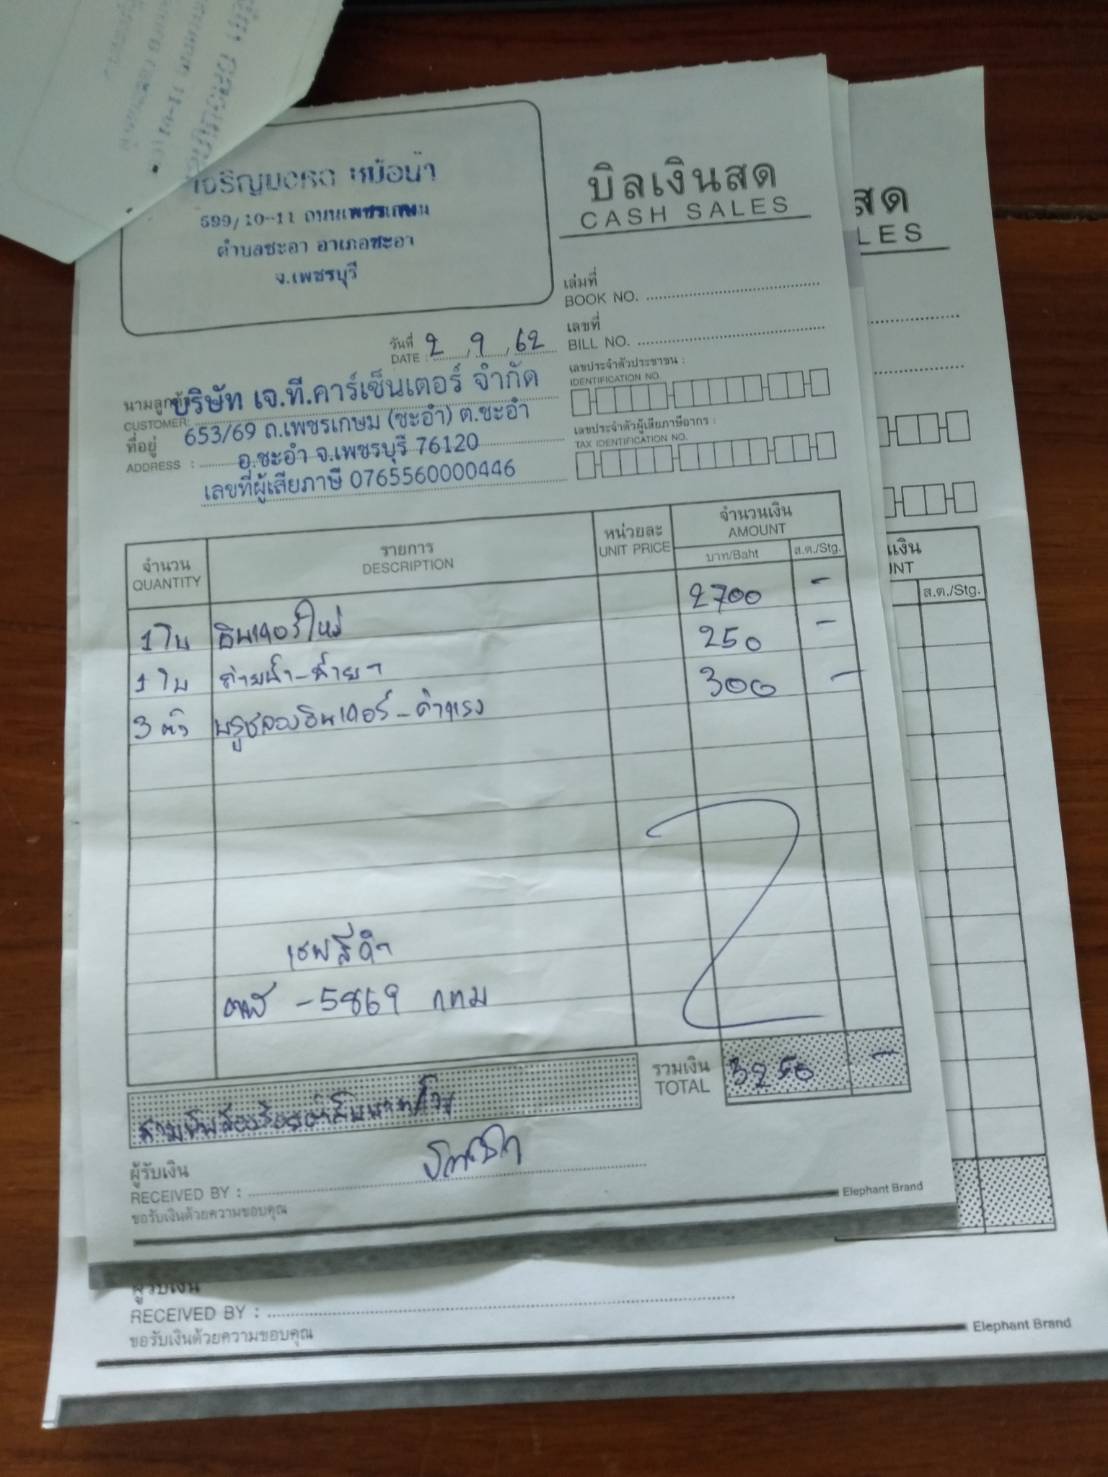 เจริญยนต์ หม้อน้ำ
599/10-11 ถนนเพชรเกษม
ตำบลชะอำ อำเภอชะอำ
จ.เพชรบุรี
บิลเงินสด
CASH SALES
เล่มที่
BOOK NO.
เลขที่
BILL NO.
วันที่
DATE : 2 , 9 , 62
เลขประจำตัวประชาชน :
IDENTIFICATION NO.
เลขประจำตัวผู้เสียภาษีอากร :
TAX IDENTIFICATION NO.
CUSTOMER: บริษัท เจ.ที.คาร์เซ็นเตอร์ จำกัด
ที่อยู่ 653/69 ถ.เพชรเกษม (ชะอำ) ต.ชะอำ
ADDRESS : อ.ชะอำ จ.เพชรบุรี 76120
เลขที่ผู้เสียภาษี 0765560000446
จำนวน
QUANTITY
รายการ
DESCRIPTION
หน่วยละ
UNIT PRICE
จำนวนเงิน
AMOUNT
บาท/Baht
ส.ต./Stg.
1 ใบ อินเตอร์ใหม่ 2700 -
1 ใบ 250 -
3 ตัว 300 -
เชฟสีดำ
-5869 กทม
รวมเงิน
TOTAL
3250 -
สามพันสองร้อยห้าสิบบาท
ผู้รับเงิน
RECEIVED BY :
ขอรับเงินด้วยความขอบคุณ
Elephant Brand
สด
LES
ส.ต./Stg.
ผู้รับเงิน
RECEIVED BY :
ขอรับเงินด้วยความขอบคุณ
Elephant Brand